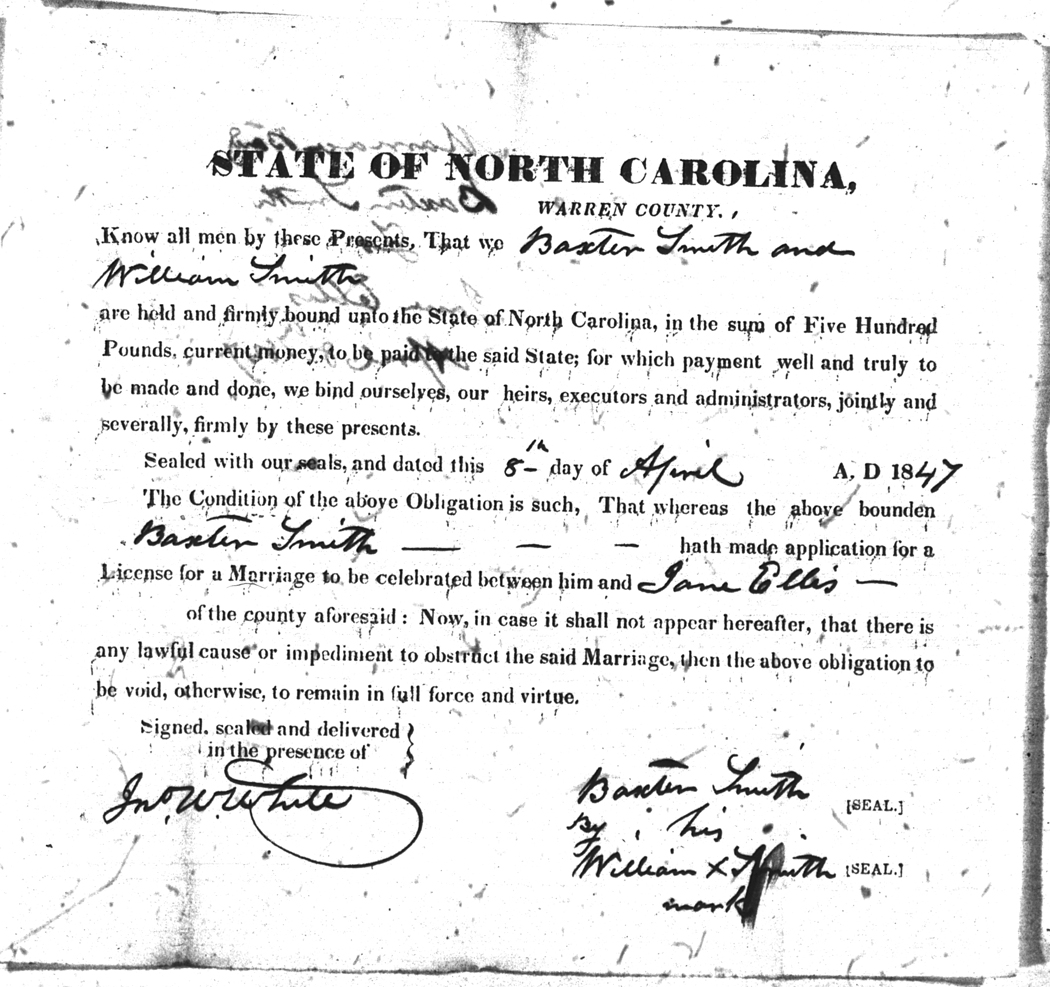 STATE OF NORTH CAROLINA,
WARREN COUNTY.,
Know all men by these Presents, That we Baxter Smith and
William Smith
are held and firmly bound unto the State of North Carolina, in the sum of Five Hundred
Pounds, current money, to be paid to the said State; for which payment well and truly to
be made and done, we bind ourselves, our heirs, executors and administrators, jointly and
severally, firmly by these presents.
Sealed with our seals, and dated this 8th day of April A. D 1847
The Condition of the above Obligation is such, That whereas the above bounden
Baxter Smith — — — hath made application for a
License for a Marriage to be celebrated between him and Jane Ellis —
of the county aforesaid: Now, in case it shall not appear hereafter, that there is
any lawful cause or impediment to obstruct the said Marriage, then the above obligation to
be void, otherwise, to remain in full force and virtue.
Signed, sealed and delivered }
in the presence of
Jno. W. White
Baxter Smith [SEAL.]
By his
William X Smith [SEAL.]
mark